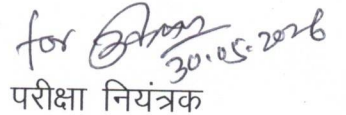 for
30.05.2026
परीक्षा नियंत्रक